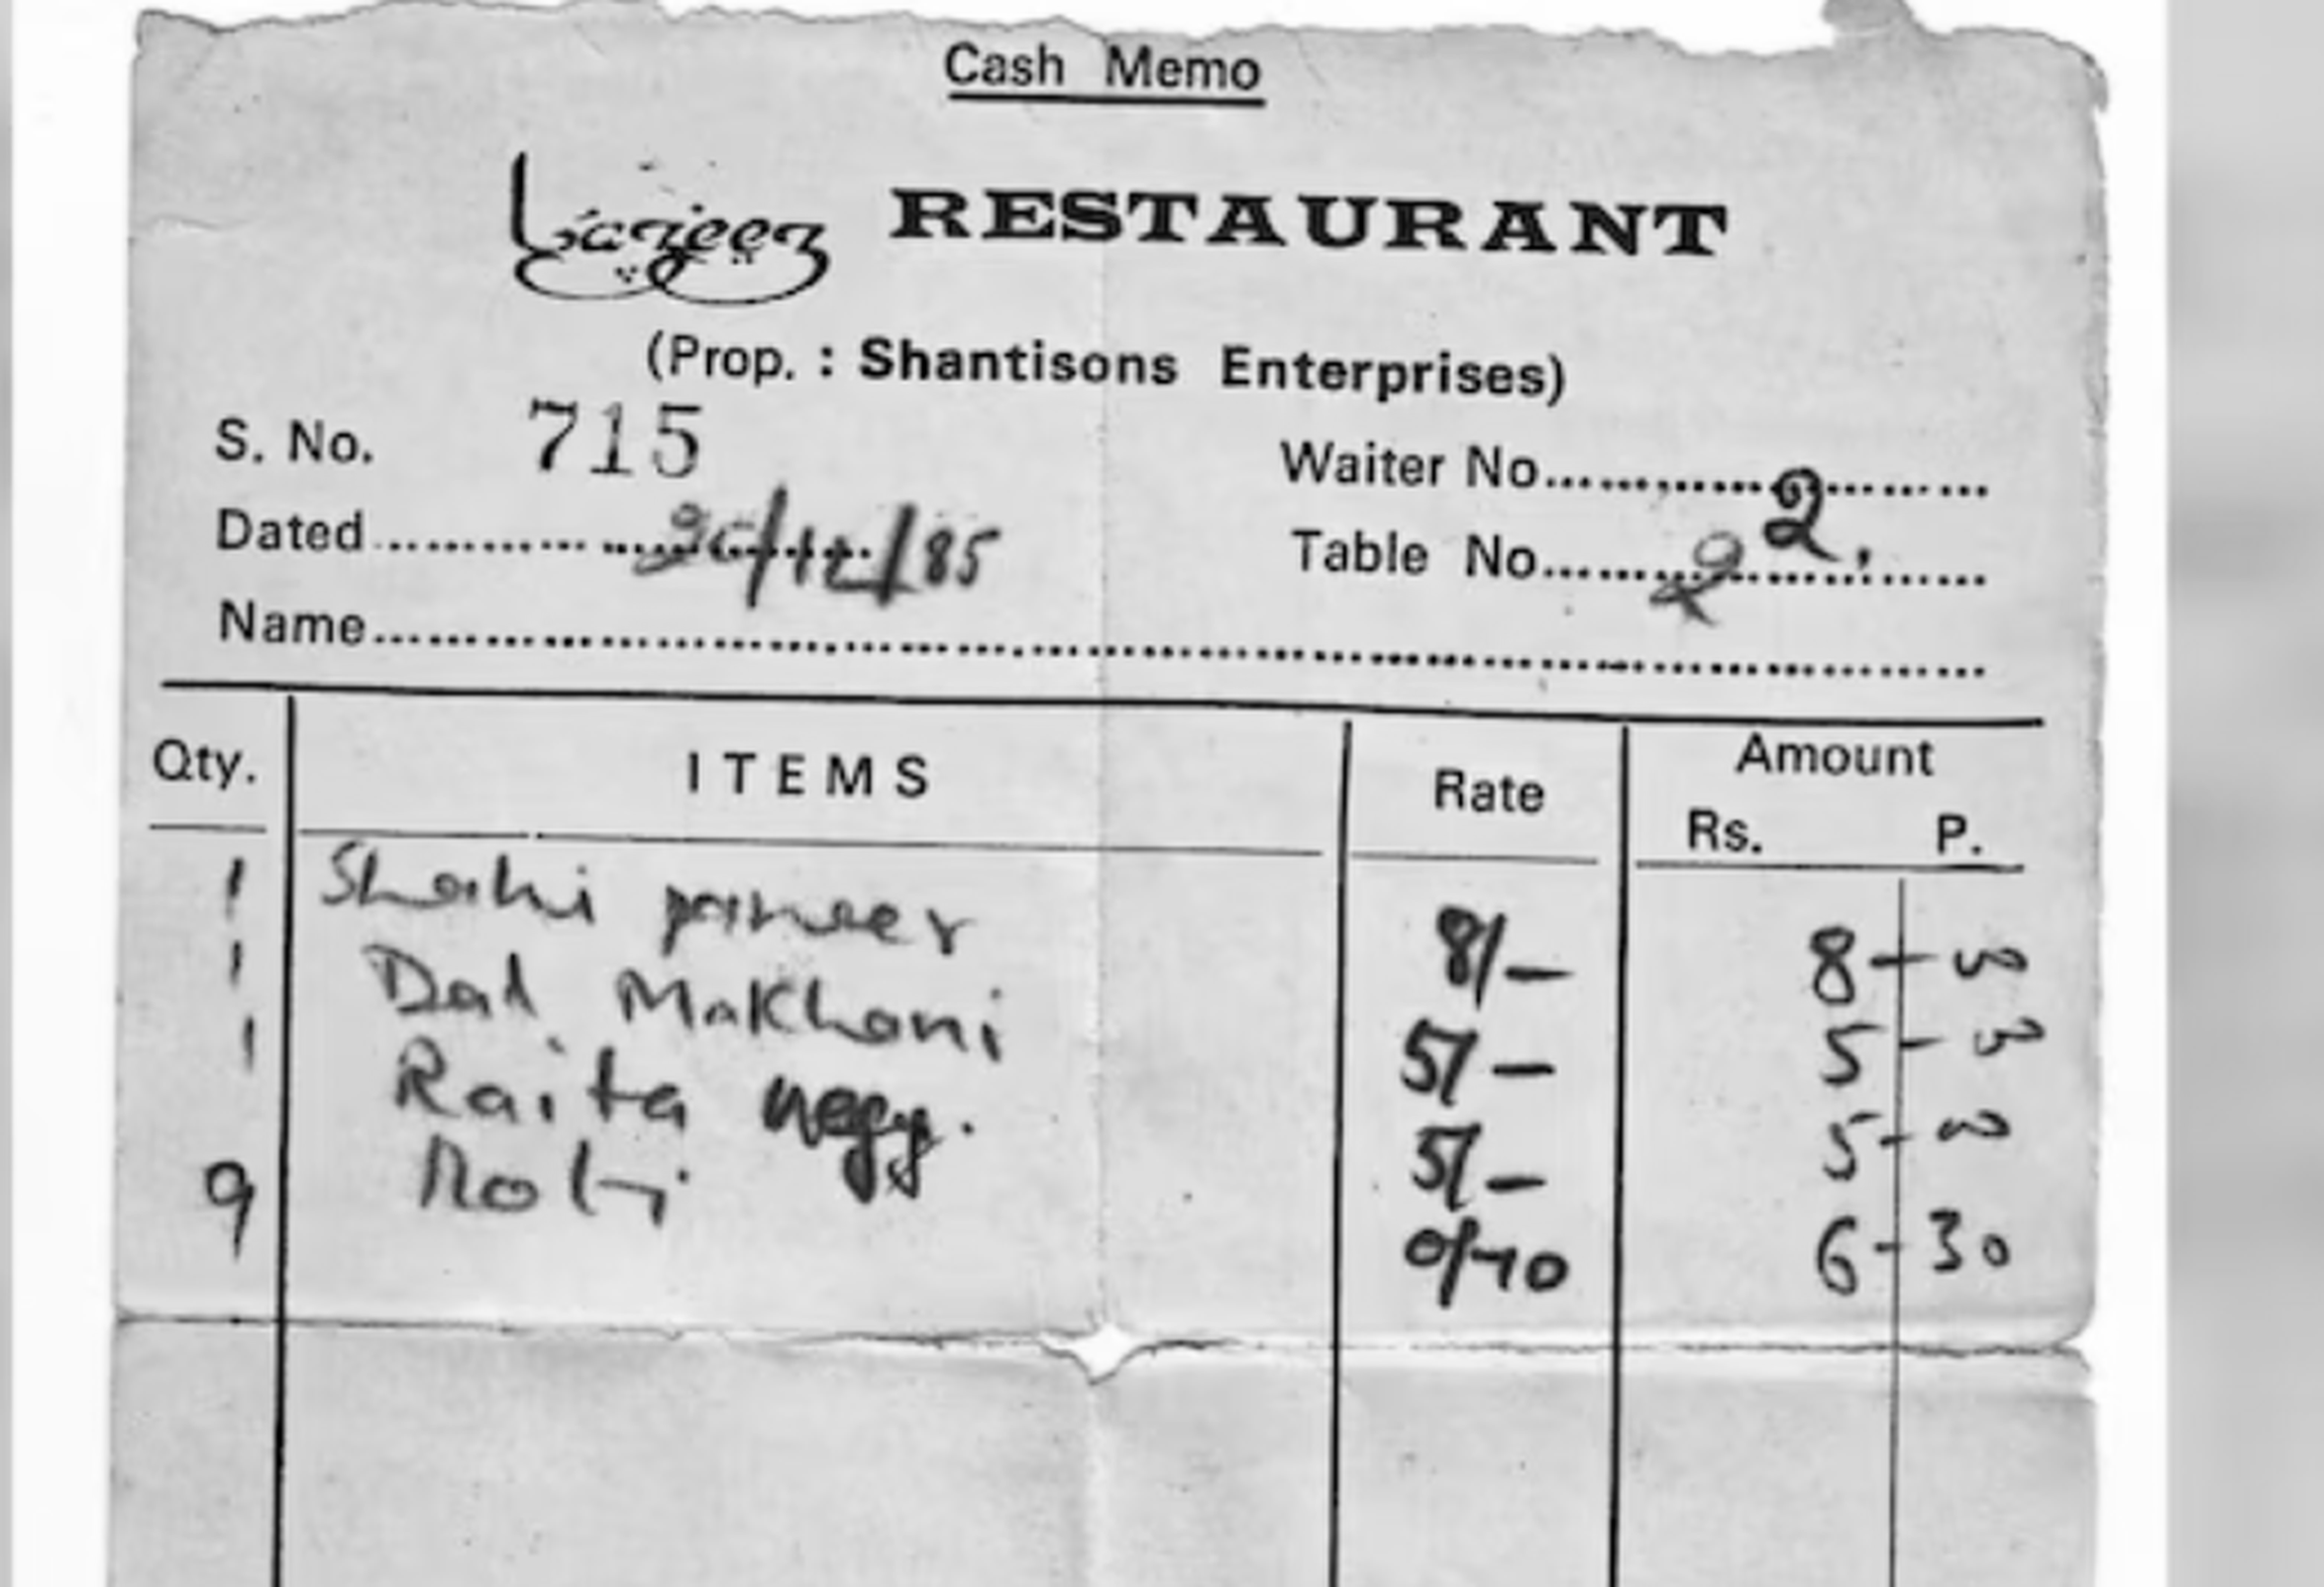 Cash Memo
Lazeez RESTAURANT
(Prop. : Shantisons Enterprises)
S. No. 715
Waiter No.................. 2.
Dated .................... /12/85
Table No.................. 2
Name............................................................
Qty. ITEMS Rate Amount
Rs. P.
1 Shahi paneer 8/— 8 - 00
1 Dal Makhani 5/— 5 - 00
1 Raita vegg. 5/— 5 - 00
9 Roti 0/70 6 - 30